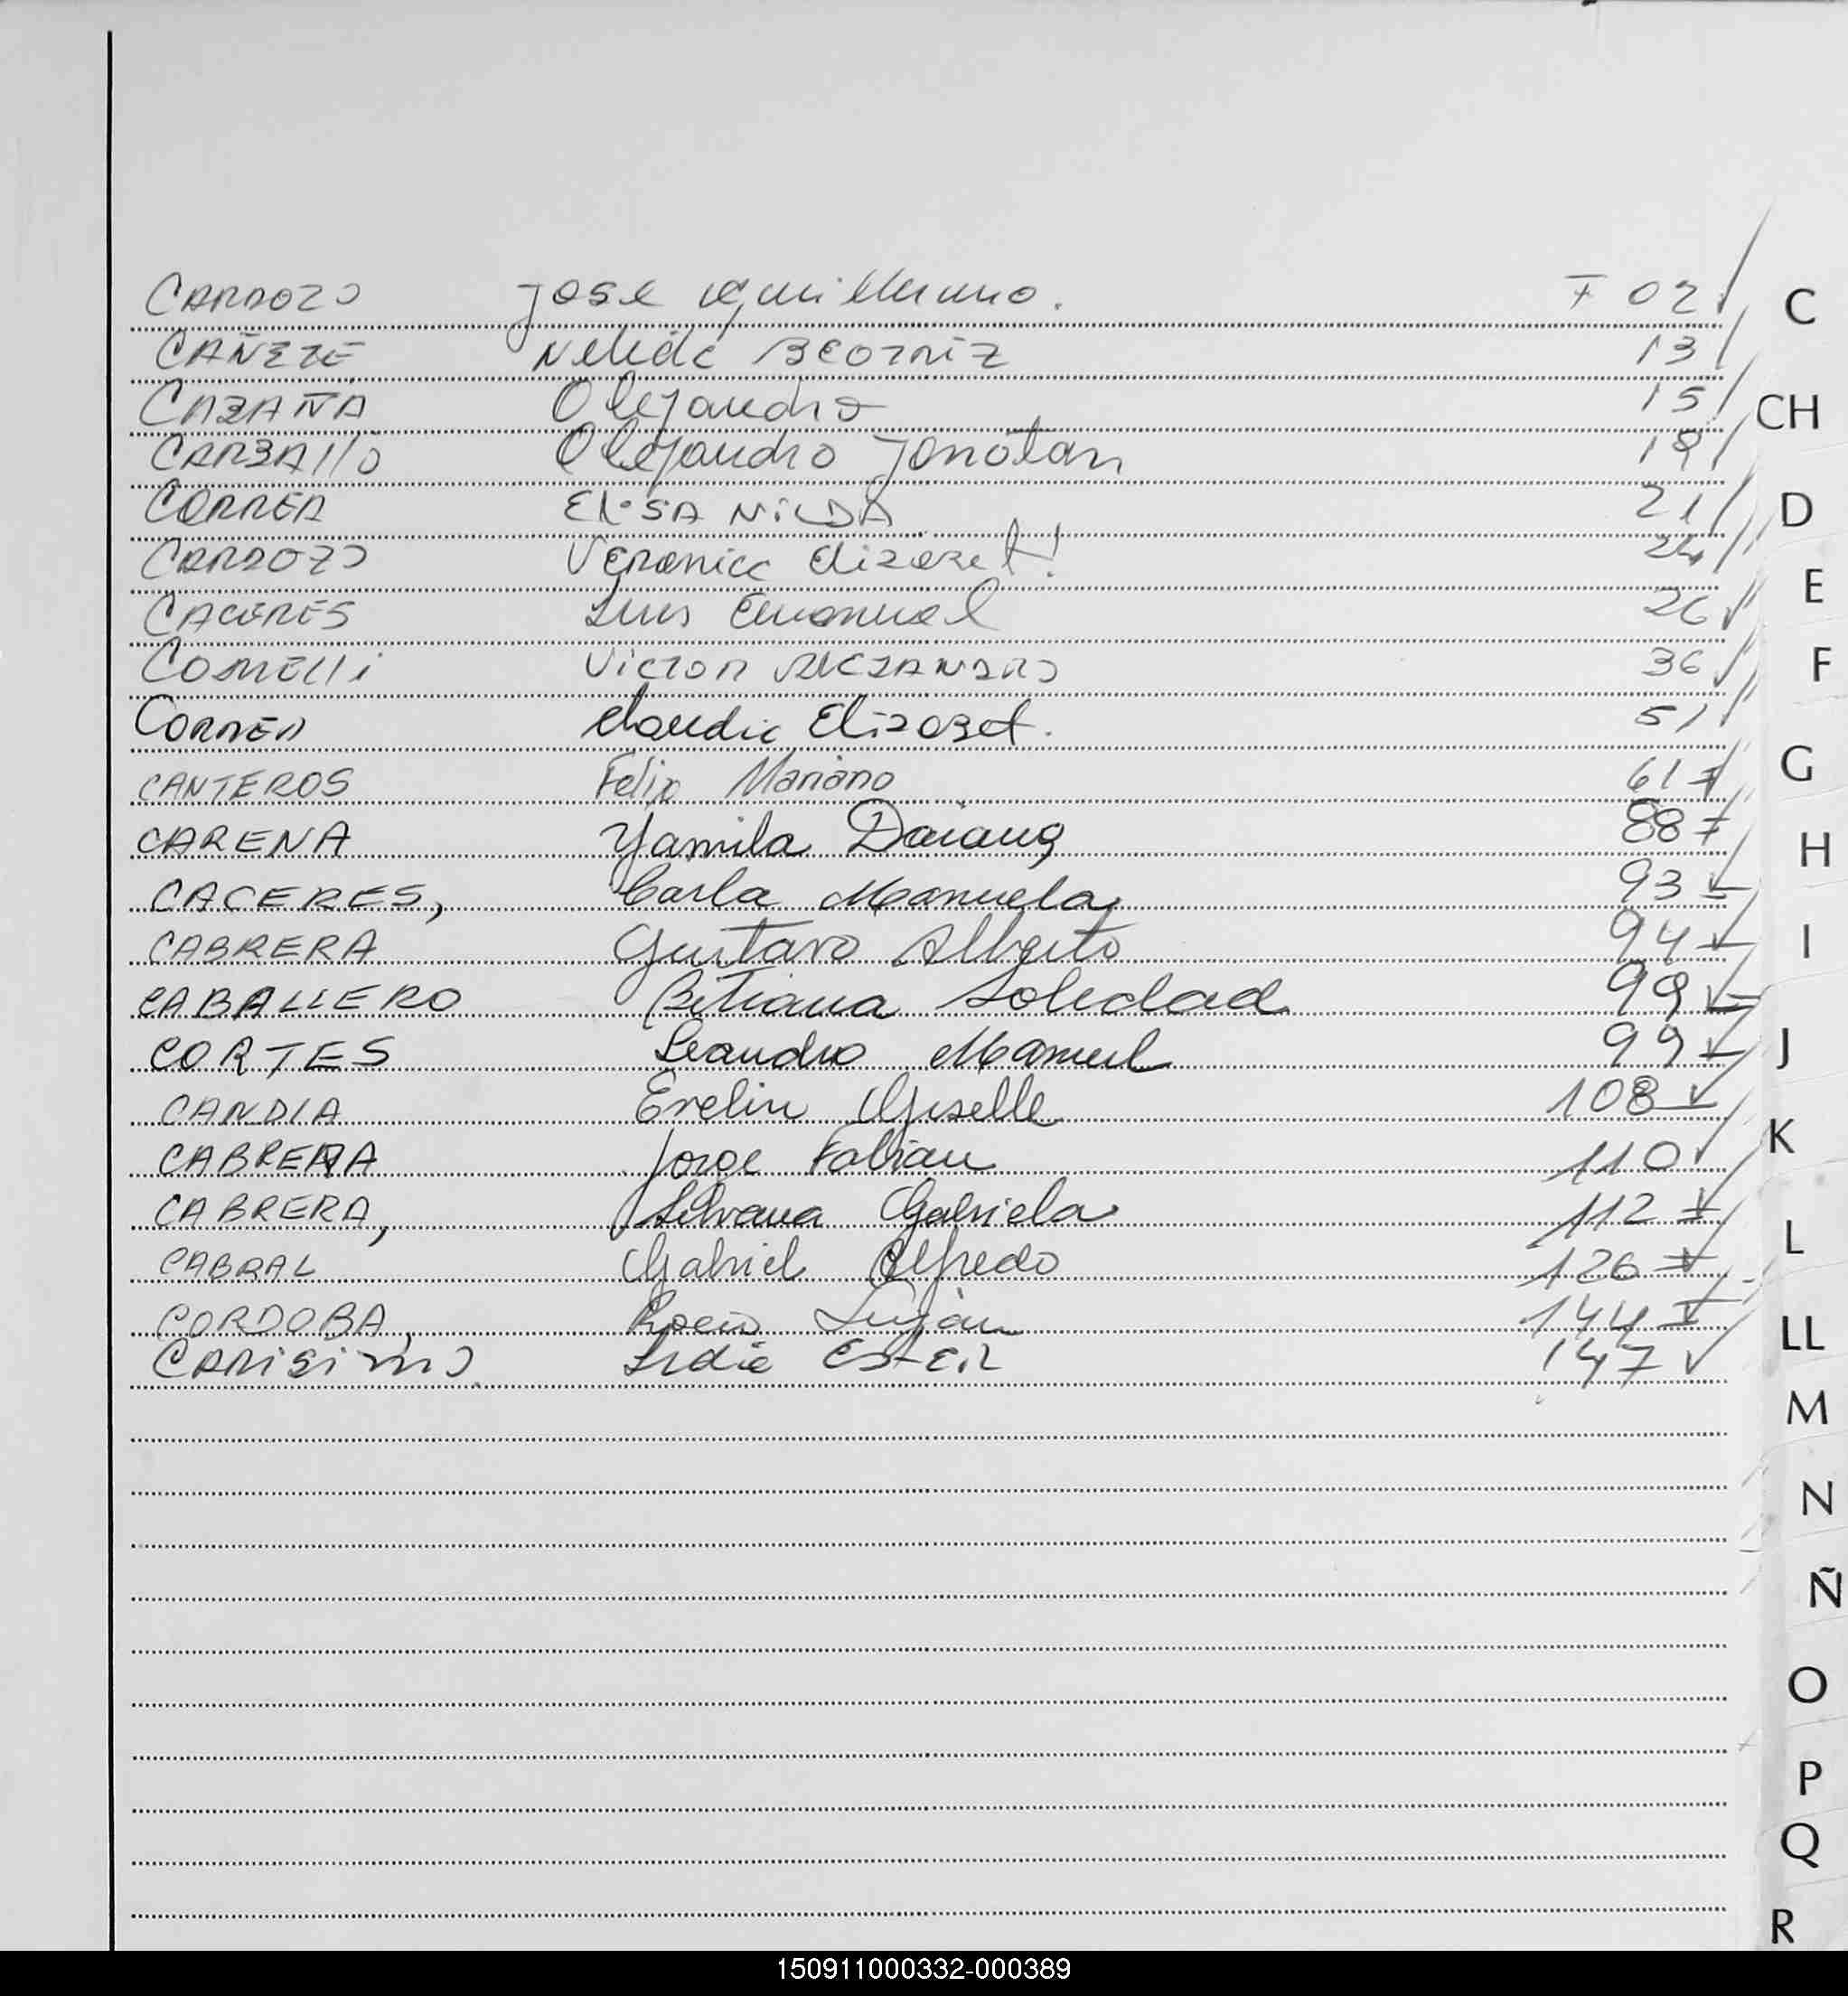 CARDOZO Jose Guillermo. F 02
CAÑETE Nelida BEATRIZ 13
CABAÑA Alejandro 15
CARBAllO Alejandro Jonatan 18
CORREA ELISA NILDA 21
CARDOZO VERONICA Elizabet 24
CACERES Luis Emanuel 26
COMELLi VICTOR ALEJANDRO 36
CORREA Claudia Elizabet. 51
CANTEROS Felix Mariano 61
CARENA Yamila Daiana 88
CACERES, Carla Manuela 93
CABRERA Gustavo Alberto 94
CABALLERO Betiana Soledad 99
CORTES Leandro Manuel 99
CANDIA Evelin Giselle 108
CABRERA Jorge Fabian 110
CABRERA, Silvana Gabriela 112
CABRAL Gabriel Alfredo 126
CORDOBA, Rocio Luján 144
CARISIMO Lidia ESTER 147
C
CH
D
E
F
G
H
I
J
K
L
LL
M
N
Ñ
O
P
Q
R
150911000332-000389